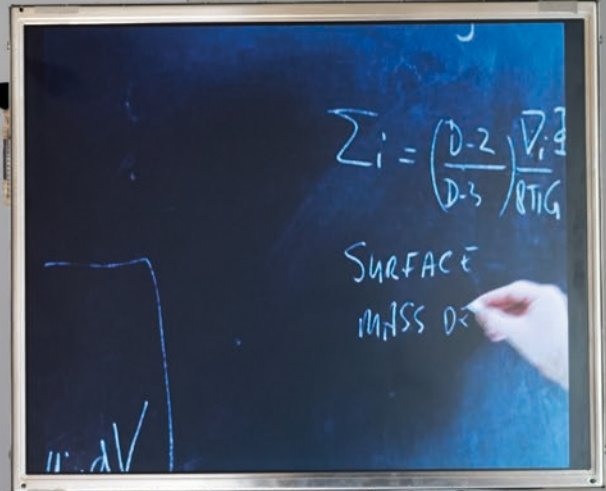 Σi = (D-2/D-3) ∇iΦ/8πG
SURFACE
MASS DE
dV